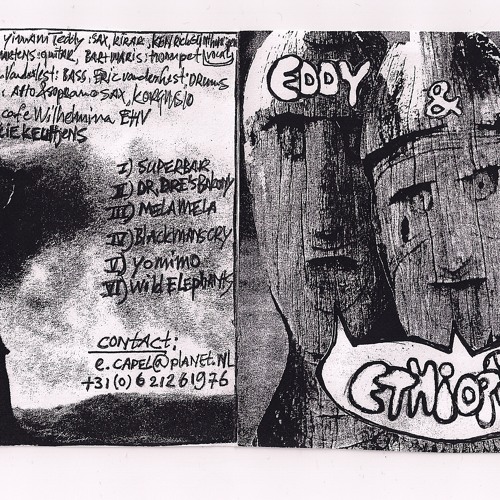 Yimam Teddy : SAX, KIRAR,
guitar, BART MARIS : trompet, vocals
BASS, Eric vanderhest : DRUMS
: Alto & soprano SAX, KORGMS10
cafe Wilhelmina EHV
I) SUPERBAR
II) DR, DRE'S BALCONY
III) MELA MELA
IV) Blackmanscry
V) yomimo
VI) Wild Elephants
contact:
e.CAPEL@planet.NL
+31(0)621261976
EDDY
&
ETHIOP